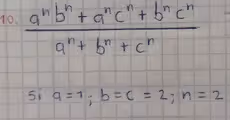 10. aⁿbⁿ + aⁿcⁿ + bⁿcⁿ
aⁿ + bⁿ + cⁿ
Si a = 1 ; b = c = 2 ; n = 2